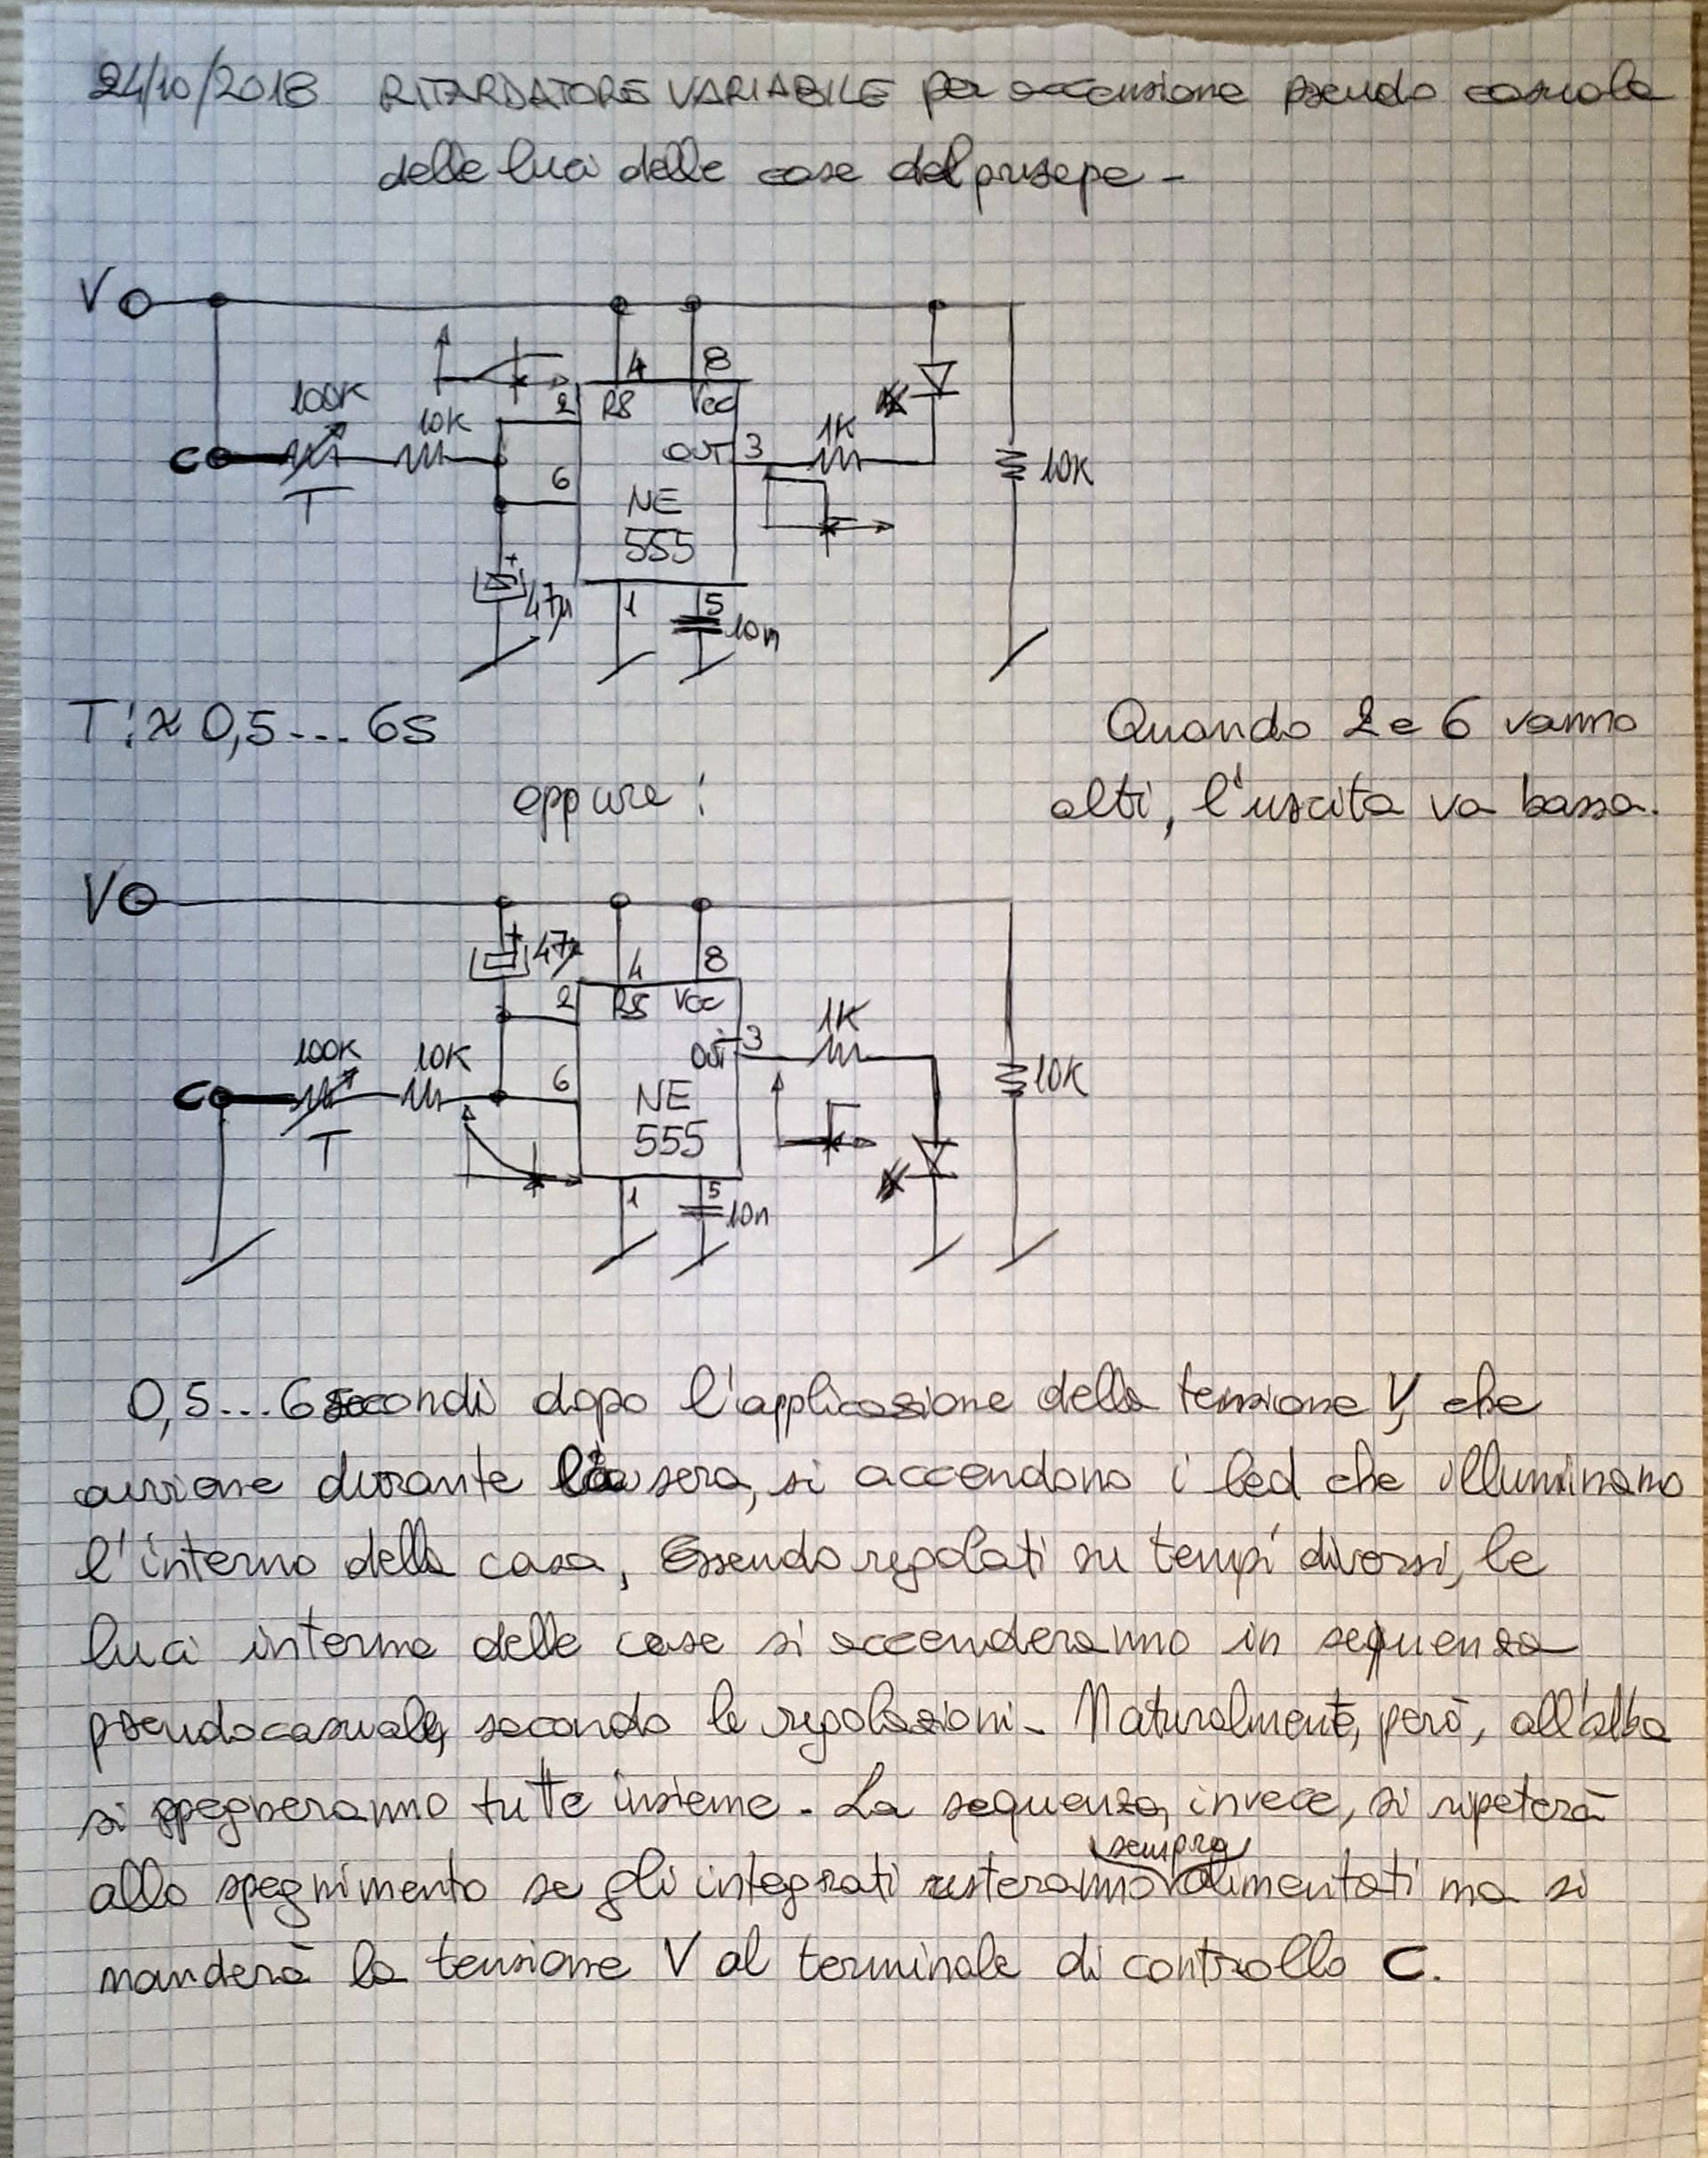 24/10/2018 RITARDATORE VARIABILE per accensione pseudo casuale
delle luci delle case del presepe -
V
100K
10K
C
T
2
6
4
8
RS
Vcc
OUT
3
1K
NE
555
10K
+
47µ
1
5
10n
T: ≈ 0,5...6s
Quando 2 e 6 vanno
eppure:
alti, l'uscita va bassa.
V
+
47µ
4
8
2
RS
Vcc
OUT
3
1K
100K
10K
C
T
6
NE
555
10K
1
5
10n
0,5...6 secondi dopo l'applicazione della tensione V, che
avviene durante la sera, si accendono i led che illuminano
l'interno della casa, Essendo regolati su tempi diversi, le
luci interne delle case si accenderanno in sequenza
pseudocasuale, secondo le regolazioni - Naturalmente, però, all'alba
si spegneranno tutte insieme. La sequenza, invece, si ripeterà
sempre
allo spegnimento se gli integrati resteranno alimentati ma si
manderà la tensione V al terminale di controllo C.